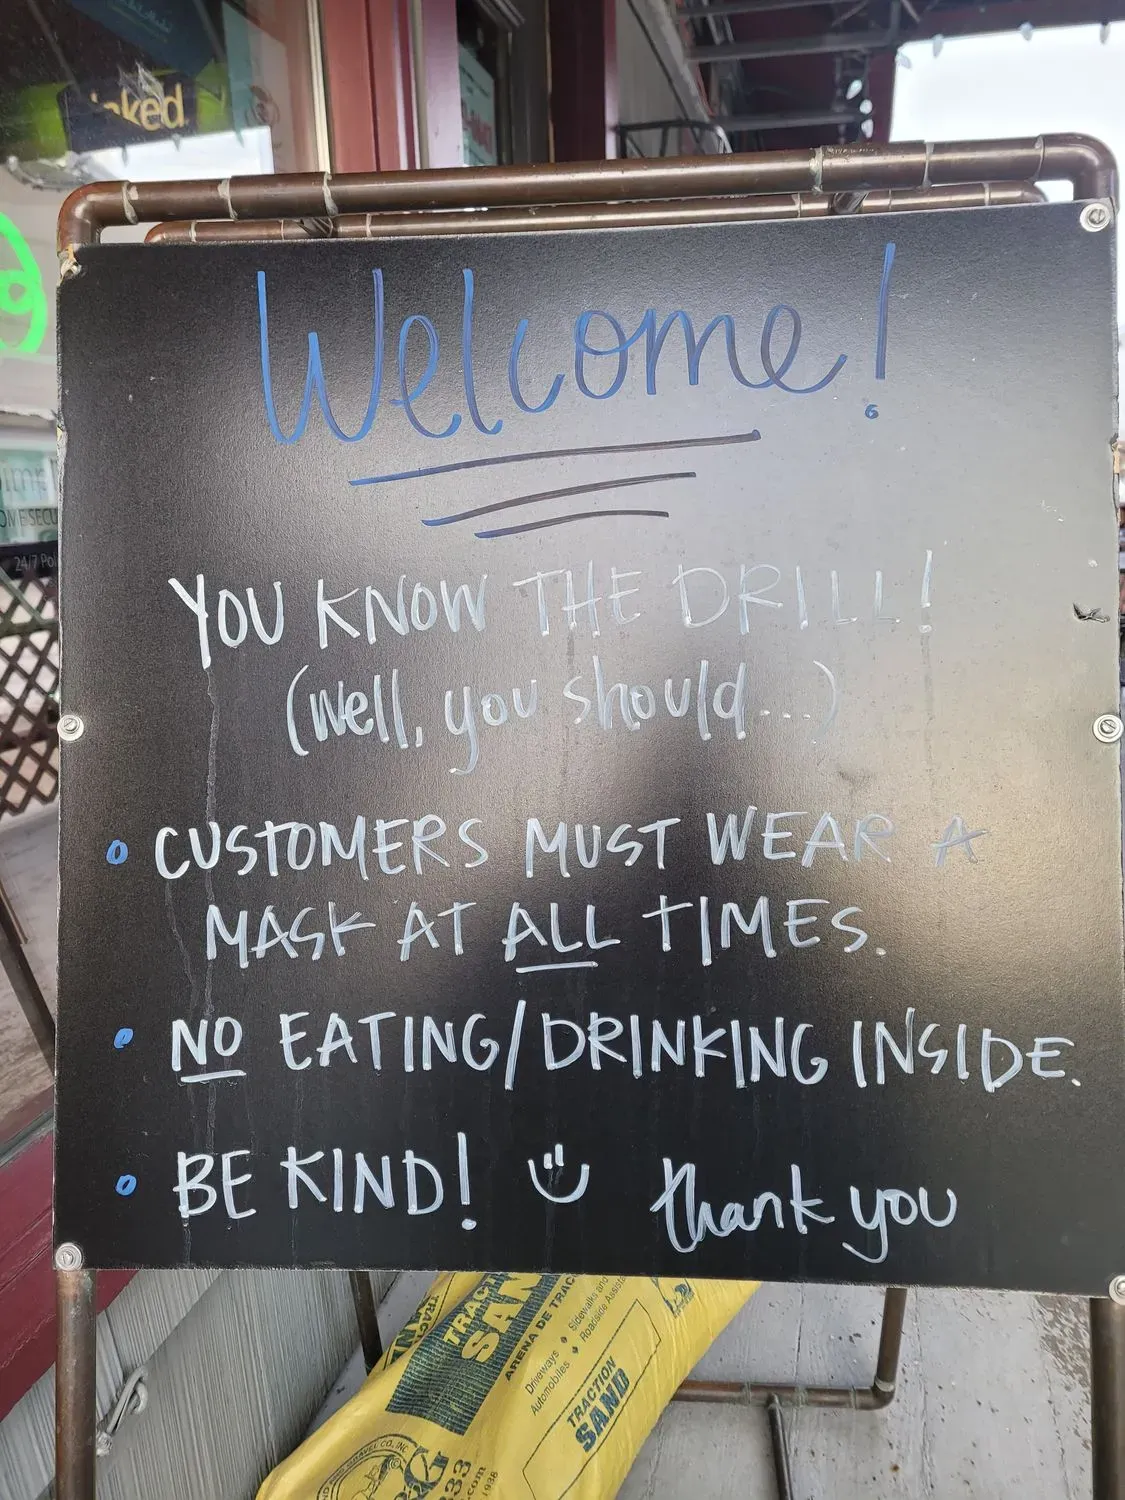 Welcome!
YOU KNOW THE DRILL!
(Well, you should...)
CUSTOMERS MUST WEAR A
MASK AT ALL TIMES.
NO EATING/DRINKING INSIDE.
BE KIND! thank you
TRACTION
SAND
ARENA DE TRAC
Driveways • Sidewalks and
Automobiles • Roadside Assist
24/7
1938